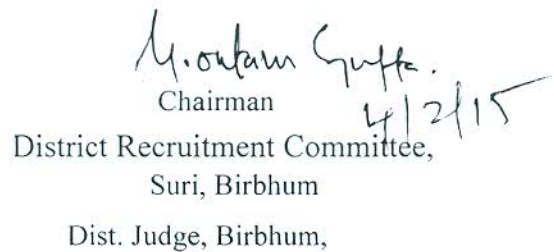 Gupta.
Chairman
4/2/15
District Recruitment Committee,
Suri, Birbhum
Dist. Judge, Birbhum,